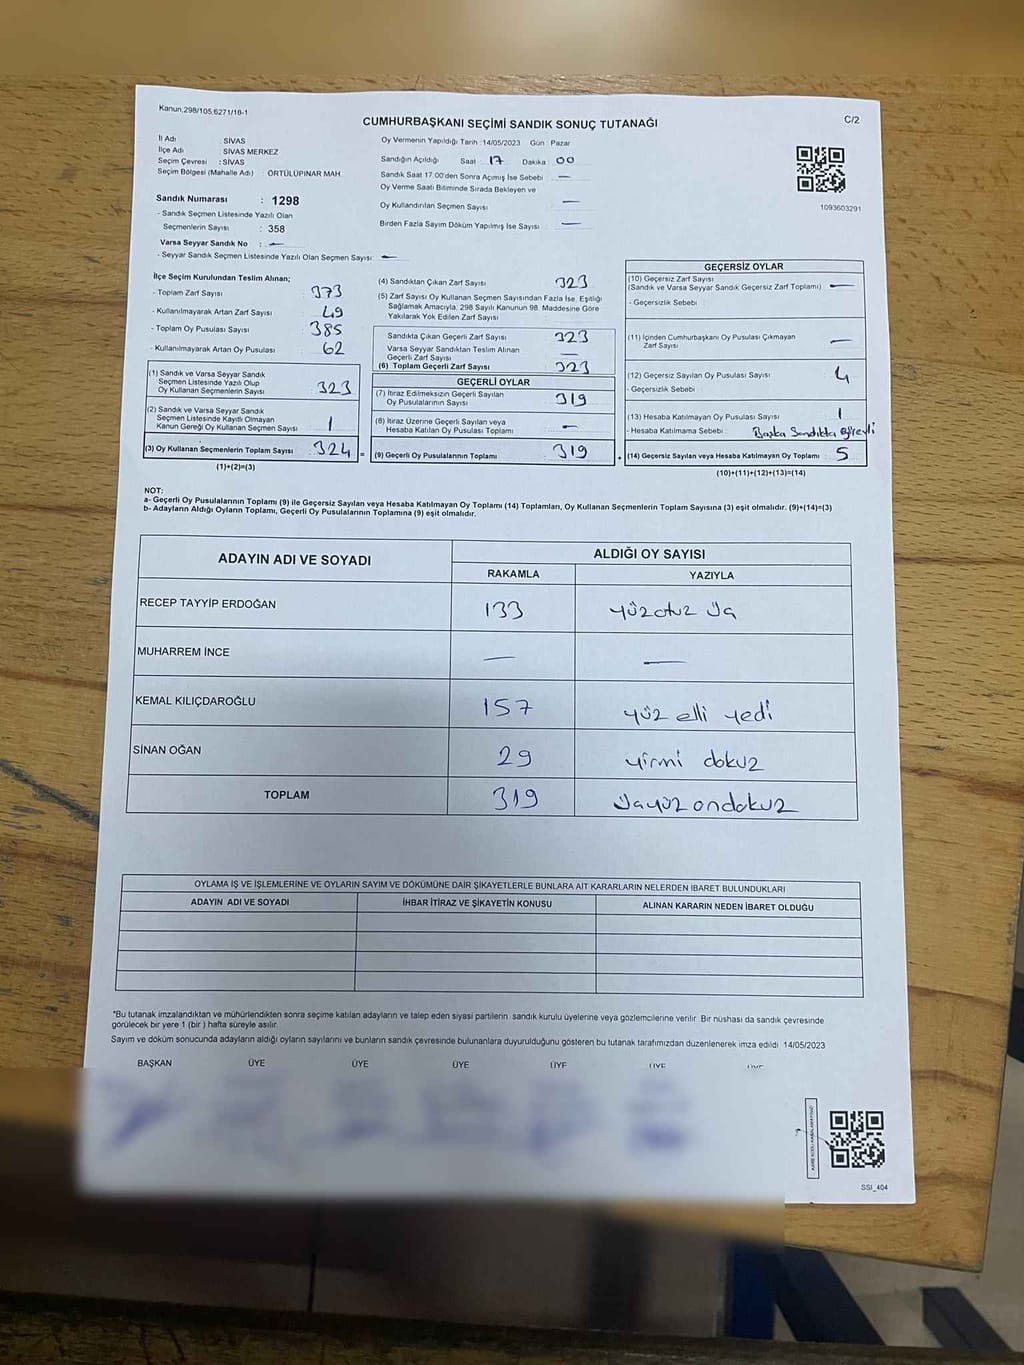 Kanun.298/105.6271/18-1
C/2
CUMHURBAŞKANI SEÇİMİ SANDIK SONUÇ TUTANAĞI
İl Adı : SİVAS
İlçe Adı : SİVAS MERKEZ
Seçim Çevresi : SİVAS
Seçim Bölgesi (Mahalle Adı) : ÖRTÜLÜPINAR MAH.
Sandık Numarası : 1298
- Sandık Seçmen Listesinde Yazılı Olan
Seçmenlerin Sayısı : 358
Varsa Seyyar Sandık No : —
- Seyyar Sandık Seçmen Listesinde Yazılı Olan Seçmen Sayısı: —
Oy Vermenin Yapıldığı Tarih : 14/05/2023 Gün : Pazar
Sandığın Açıldığı Saat 17 Dakika 00
Sandık Saat 17.00'den Sonra Açımış İse Sebebi —
Oy Verme Saati Bitiminde Sırada Bekleyen ve
Oy Kullandırılan Seçmen Sayısı —
Birden Fazla Sayım Döküm Yapılmış İse Sayısı —
1093603291
İlçe Seçim Kurulundan Teslim Alınan;
- Toplam Zarf Sayısı 373
- Kullanılmayarak Artan Zarf Sayısı 49
- Toplam Oy Pusulası Sayısı 385
- Kullanılmayarak Artan Oy Pusulası 62
(1) Sandık ve Varsa Seyyar Sandık
Seçmen Listesinde Yazılı Olup
Oy Kullanan Seçmenlerin Sayısı 323
(2) Sandık ve Varsa Seyyar Sandık
Seçmen Listesinde Kayıtlı Olmayan
Kanun Gereği Oy Kullanan Seçmen Sayısı 1
(3) Oy Kullanan Seçmenlerin Toplam Sayısı 324 =
(1)+(2)=(3)
(4) Sandıktan Çıkan Zarf Sayısı 323
(5) Zarf Sayısı Oy Kullanan Seçmen Sayısından Fazla İse, Eşitliği
Sağlamak Amacıyla, 298 Sayılı Kanunun 98. Maddesine Göre
Yakılarak Yok Edilen Zarf Sayısı
Sandıkta Çıkan Geçerli Zarf Sayısı 323
Varsa Seyyar Sandıktan Teslim Alınan
Geçerli Zarf Sayısı —
(6) Toplam Geçerli Zarf Sayısı 323
GEÇERLİ OYLAR
(7) İtiraz Edilmeksizin Geçerli Sayılan
Oy Pusulalarının Sayısı 319
(8) İtiraz Üzerine Geçerli Sayılan veya
Hesaba Katılan Oy Pusulası Toplamı —
(9) Geçerli Oy Pusulalarının Toplamı 319 +
GEÇERSİZ OYLAR
(10) Geçersiz Zarf Sayısı
(Sandık ve Varsa Seyyar Sandık Geçersiz Zarf Toplamı) —
- Geçersizlik Sebebi
(11) İçinden Cumhurbaşkanı Oy Pusulası Çıkmayan
Zarf Sayısı —
(12) Geçersiz Sayılan Oy Pusulası Sayısı 4
- Geçersizlik Sebebi
(13) Hesaba Katılmayan Oy Pusulası Sayısı 1
- Hesaba Katılmama Sebebi : Başka Sandıkta Görevli
(14) Geçersiz Sayılan veya Hesaba Katılmayan Oy Toplamı 5
(10)+(11)+(12)+(13)=(14)
NOT:
a- Geçerli Oy Pusulalarının Toplamı (9) ile Geçersiz Sayılan veya Hesaba Katılmayan Oy Toplamı (14) Toplamları, Oy Kullanan Seçmenlerin Toplam Sayısına (3) eşit olmalıdır. (9)+(14)=(3)
b- Adayların Aldığı Oyların Toplamı, Geçerli Oy Pusulalarının Toplamına (9) eşit olmalıdır.
ADAYIN ADI VE SOYADI ALDIĞI OY SAYISI
RAKAMLA YAZIYLA
RECEP TAYYİP ERDOĞAN 133 yüzotuz üç
MUHARREM İNCE — —
KEMAL KILIÇDAROĞLU 157 yüz elli yedi
SİNAN OĞAN 29 yirmi dokuz
TOPLAM 319 üçyüz ondokuz
OYLAMA İŞ VE İŞLEMLERİNE VE OYLARIN SAYIM VE DÖKÜMÜNE DAİR ŞİKAYETLERLE BUNLARA AİT KARARLARIN NELERDEN İBARET BULUNDUKLARI
ADAYIN ADI VE SOYADI İHBAR İTİRAZ VE ŞİKAYETİN KONUSU ALINAN KARARIN NEDEN İBARET OLDUĞU
*Bu tutanak imzalandıktan ve mühürlendikten sonra seçime katılan adayların ve talep eden siyasi partilerin sandık kurulu üyelerine veya gözlemcilerine verilir. Bir nüshası da sandık çevresinde
görülecek bir yere 1 (bir ) hafta süreyle asılır.
Sayım ve döküm sonucunda adayların aldığı oyların sayılarını ve bunların sandık çevresinde bulunanlara duyurulduğunu gösteren bu tutanak tarafımızdan düzenlenerek imza edildi. 14/05/2023
BAŞKAN ÜYE ÜYE ÜYE ÜYE ÜYE
SSI_404